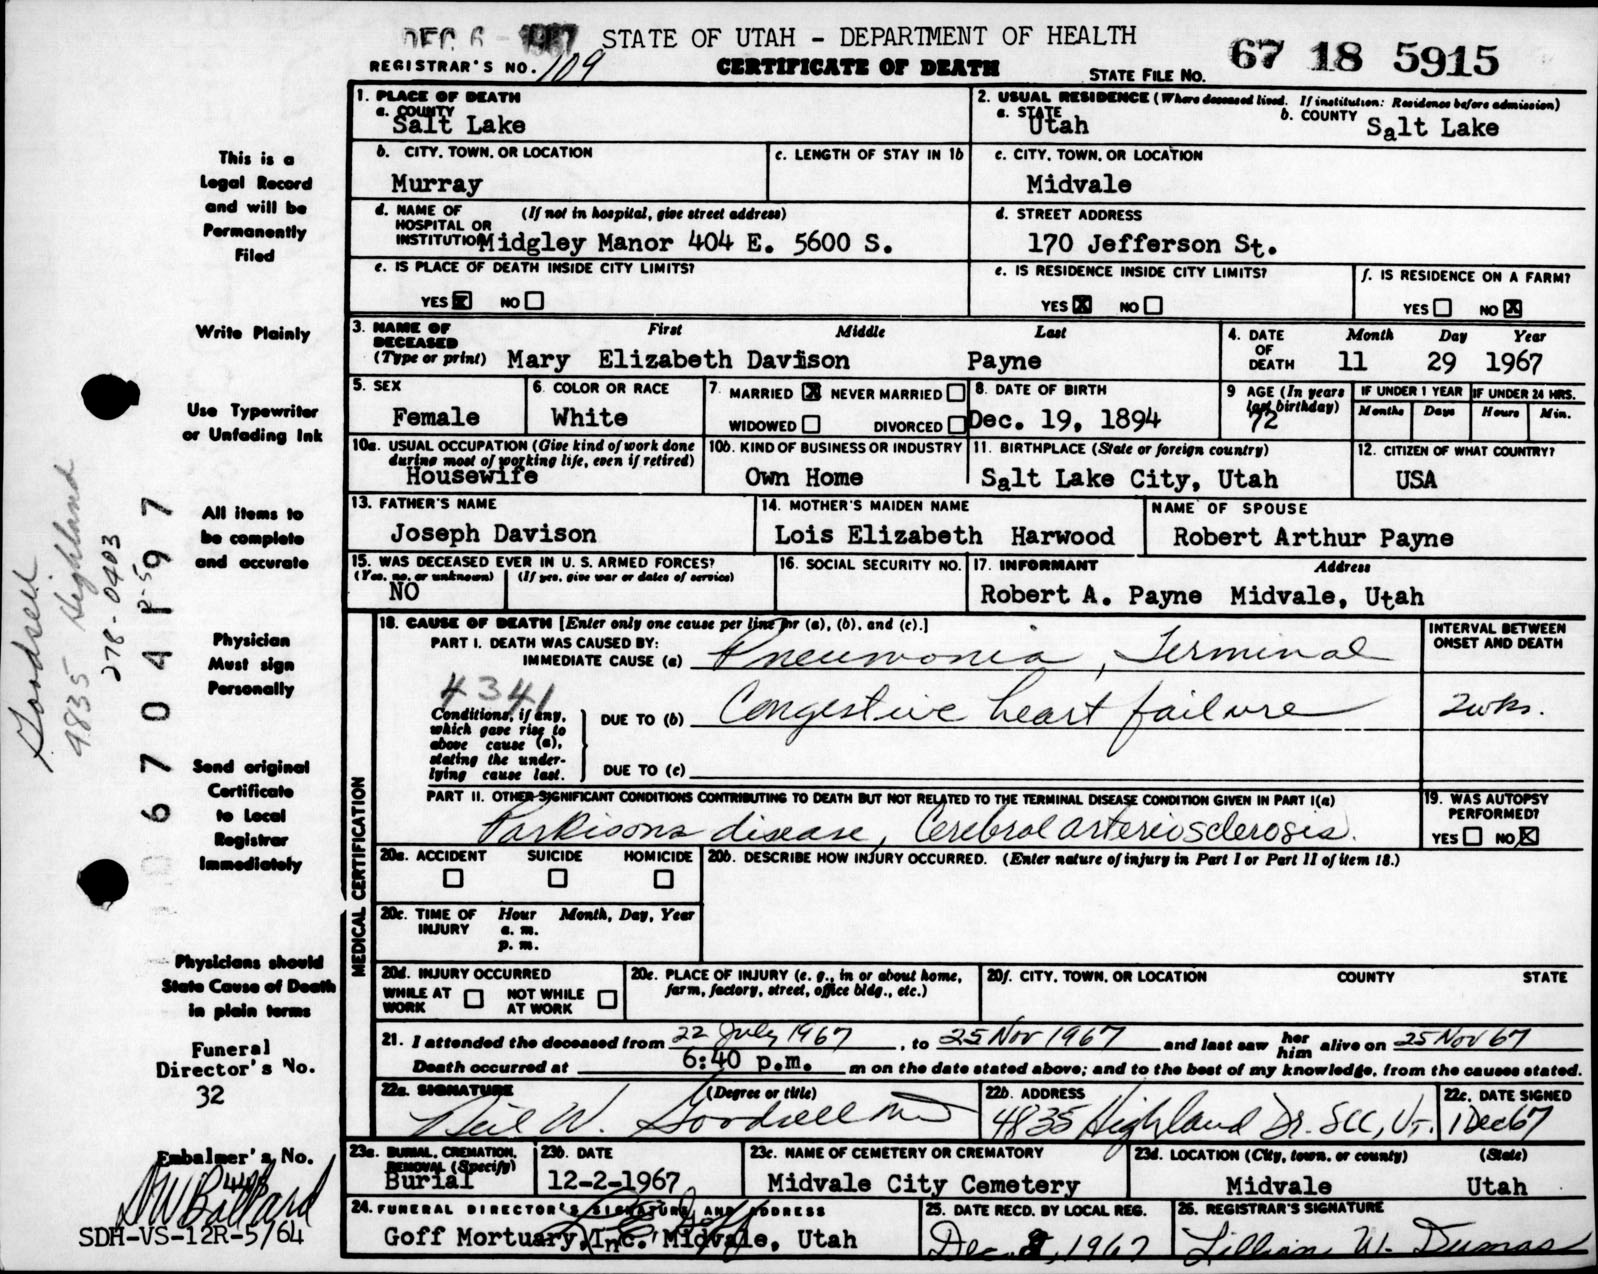 DEC 6 - 1967 STATE OF UTAH - DEPARTMENT OF HEALTH
REGISTRAR'S NO. 109 CERTIFICATE OF DEATH STATE FILE No. 67 18 5915
1. PLACE OF DEATH
a. COUNTY
Salt Lake
2. USUAL RESIDENCE (Where deceased lived. If institution: Residence before admission)
a. STATE Utah b. COUNTY Salt Lake
b. CITY, TOWN, OR LOCATION
Murray
c. LENGTH OF STAY IN 1b
c. CITY, TOWN, OR LOCATION
Midvale
d. NAME OF HOSPITAL OR INSTITUTION (If not in hospital, give street address)
Midgley Manor 404 E. 5600 S.
d. STREET ADDRESS
170 Jefferson St.
e. IS PLACE OF DEATH INSIDE CITY LIMITS?
YES X NO
e. IS RESIDENCE INSIDE CITY LIMITS?
YES X NO
f. IS RESIDENCE ON A FARM?
YES NO X
3. NAME OF DECEASED (Type or print) First Middle Last
Mary Elizabeth Davison Payne
4. DATE OF DEATH Month Day Year
11 29 1967
5. SEX
Female
6. COLOR OR RACE
White
7. MARRIED X NEVER MARRIED
WIDOWED DIVORCED
8. DATE OF BIRTH
Dec. 19, 1894
9 AGE (In years last birthday)
72
IF UNDER 1 YEAR
Months Days
IF UNDER 24 HRS.
Hours Min.
10a. USUAL OCCUPATION (Give kind of work done during most of working life, even if retired)
Housewife
10b. KIND OF BUSINESS OR INDUSTRY
Own Home
11. BIRTHPLACE (State or foreign country)
Salt Lake City, Utah
12. CITIZEN OF WHAT COUNTRY?
USA
13. FATHER'S NAME
Joseph Davison
14. MOTHER'S MAIDEN NAME
Lois Elizabeth Harwood
NAME OF SPOUSE
Robert Arthur Payne
15. WAS DECEASED EVER IN U. S. ARMED FORCES?
(Yes, no, or unknown) (If yes, give war or dates of service)
NO
16. SOCIAL SECURITY NO.
17. INFORMANT Address
Robert A. Payne Midvale, Utah
MEDICAL CERTIFICATION
18. CAUSE OF DEATH [Enter only one cause per line for (a), (b), and (c).]
PART I. DEATH WAS CAUSED BY:
IMMEDIATE CAUSE (a) Pneumonia, Terminal
INTERVAL BETWEEN ONSET AND DEATH
4341
Conditions, if any, which gave rise to above cause (a), stating the underlying cause last.
DUE TO (b) Congestive heart failure 2 wks.
DUE TO (c)
PART II. OTHER SIGNIFICANT CONDITIONS CONTRIBUTING TO DEATH BUT NOT RELATED TO THE TERMINAL DISEASE CONDITION GIVEN IN PART I(a)
Parkisons disease, Cerebral arteriosclerosis.
19. WAS AUTOPSY PERFORMED?
YES NO X
20a. ACCIDENT SUICIDE HOMICIDE
20b. DESCRIBE HOW INJURY OCCURRED. (Enter nature of injury in Part I or Part II of item 18.)
20c. TIME OF INJURY Hour Month, Day, Year
a. m.
p. m.
20d. INJURY OCCURRED
WHILE AT WORK NOT WHILE AT WORK
20e. PLACE OF INJURY (e. g., in or about home, farm, factory, street, office bldg., etc.)
20f. CITY, TOWN, OR LOCATION COUNTY STATE
21. I attended the deceased from 22 July 1967, to 25 Nov 1967 and last saw her him alive on 25 Nov 67
Death occurred at 6:40 p.m. m on the date stated above; and to the best of my knowledge, from the causes stated.
22a. SIGNATURE (Degree or title)
Neil W. Goodsell MD
22b. ADDRESS
4835 Highland Dr. SLC, Ut.
22c. DATE SIGNED
1 Dec 67
23a. BURIAL, CREMATION, REMOVAL (Specify)
Burial
23b. DATE
12-2-1967
23c. NAME OF CEMETERY OR CREMATORY
Midvale City Cemetery
23d. LOCATION (City, town, or county) (State)
Midvale Utah
24. FUNERAL DIRECTOR'S SIGNATURE AND ADDRESS
Goff Mortuary, Inc. Midvale, Utah
25. DATE RECD. BY LOCAL REG.
Dec. 2, 1967
26. REGISTRAR'S SIGNATURE
Lillian W. Dumas
This is a
Legal Record
and will be
Permanently
Filed
Write Plainly
Use Typewriter
or Unfading Ink
All items to
be complete
and accurate
Physician
Must sign
Personally
Send original
Certificate
to Local
Registrar
Immediately
Physicians should
State Cause of Death
in plain terms
Funeral
Director's No.
32
Embalmer's No.
SDH-VS-12R-5/64
Goodsell
4835 Highland
278-0403